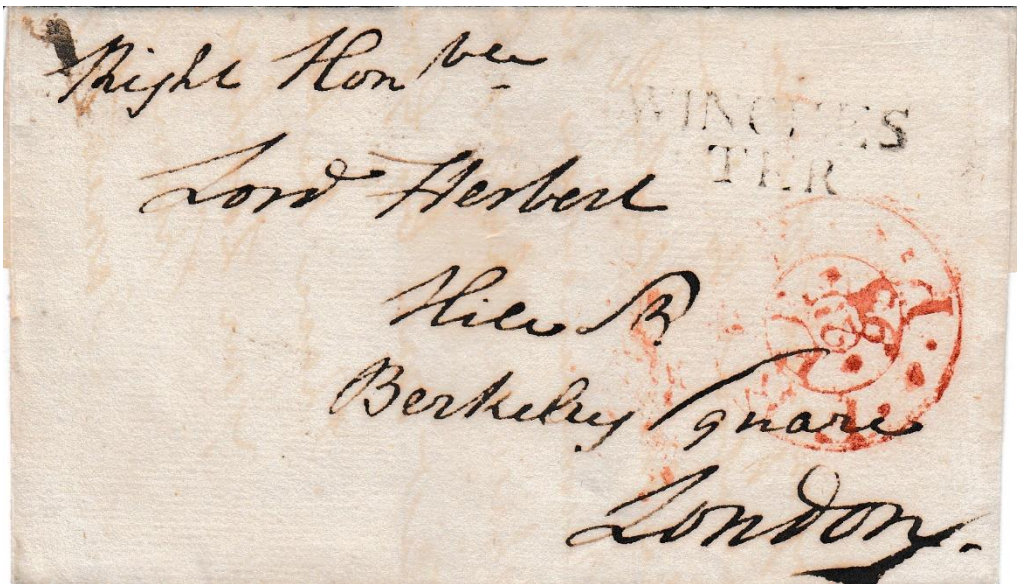 Right Hon ble
WINCHES
TER
Lord Herbert
Hill St
Berkeley Square
London.